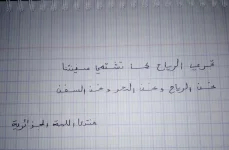 تجري الرياح كما تشتهي سفينتنا
نحن الرياح و نحن البحر و نحن السفن
منتدى اللمة الجزائرية